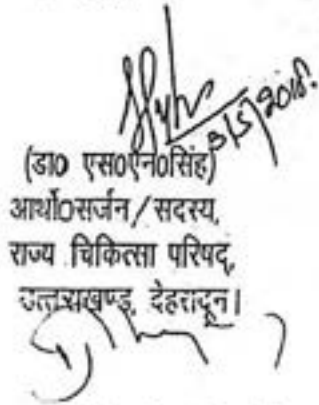 3/5/2018.
(डा0 एस0एन0सिंह)
आर्थो0सर्जन/सदस्य,
राज्य चिकित्सा परिषद्,
उत्तराखण्ड, देहरादून।